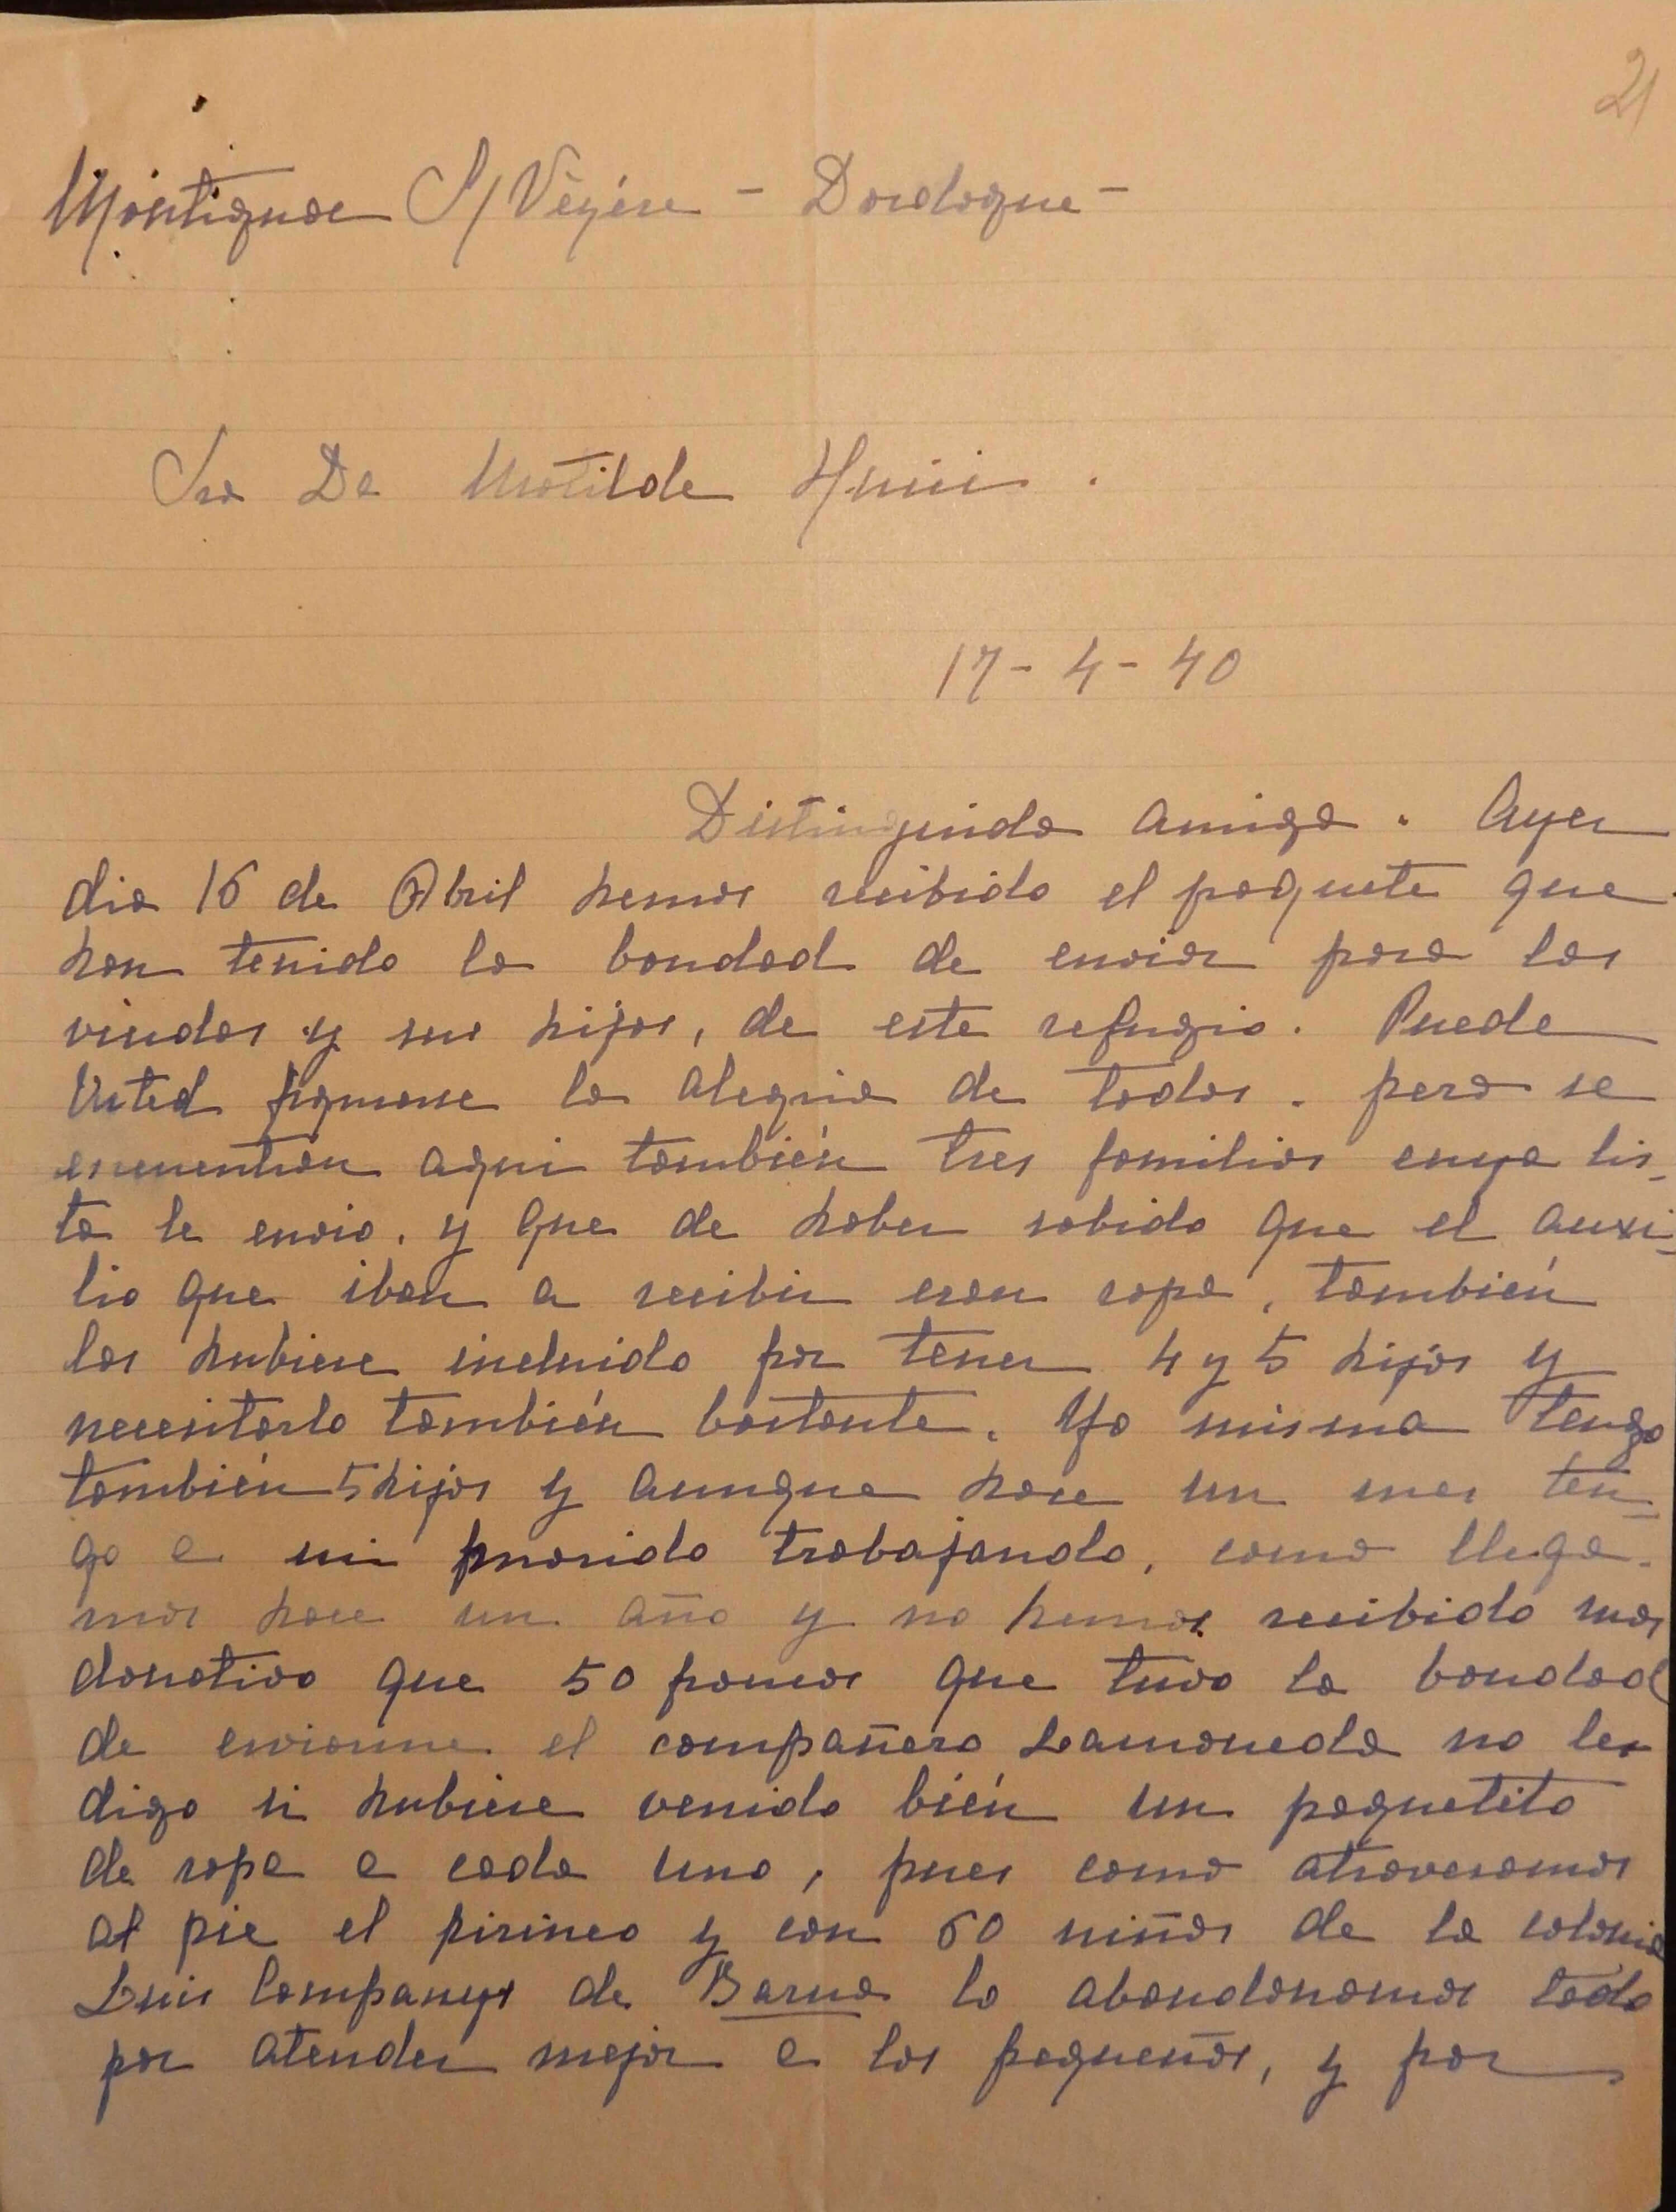 21
Montignac S/ Vézére - Dordogne -
Sra Da Matilde Huici.
17-4-40
Distinguida amiga. Ayer
dia 16 de Abril hemos recibido el paquete que
han tenido la bondad de enviar para las
viudas y sus hijos, de este refugio. Puede
Usted figurarse la alegria de todos. pero se
encuentran aqui también tres familias cuya lis-
ta le envio. y que de haber sabido que el auxi-
lio que iban a recibir eran ropa, también
las hubiese incluido por tener 4 y 5 hijos y
necesitarlo también bastante. Yo misma tengo
también 5 hijos y aunque hace un mes ten-
go a mi marido trabajando, como llega-
mos hace un año y no hemos recibido mas
donativo que 50 francos que tuvo la bondad
de enviarme el compañero Lamoneda no les
digo si hubiese venido bién un paquetito
de ropa a cada uno, pues como atravesamos
al pie el pirineo y con 60 niños de la colonia
Luis Companys de Barna lo abandonamos todo
por atender mejor a los pequeños, y por